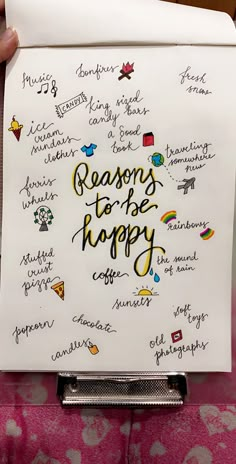 Music
bonfires
fresh
snow
CANDY
King sized
candy bars
ice
cream
sundaes
a Good
Book
clothes
traveling
somewhere
new
Reasons
to be
happy
ferris
wheels
rainbows
stuffed
crust
pizza
coffee
the sound
of rain
sunsets
popcorn
chocolate
soft
toys
candles
old
photographs